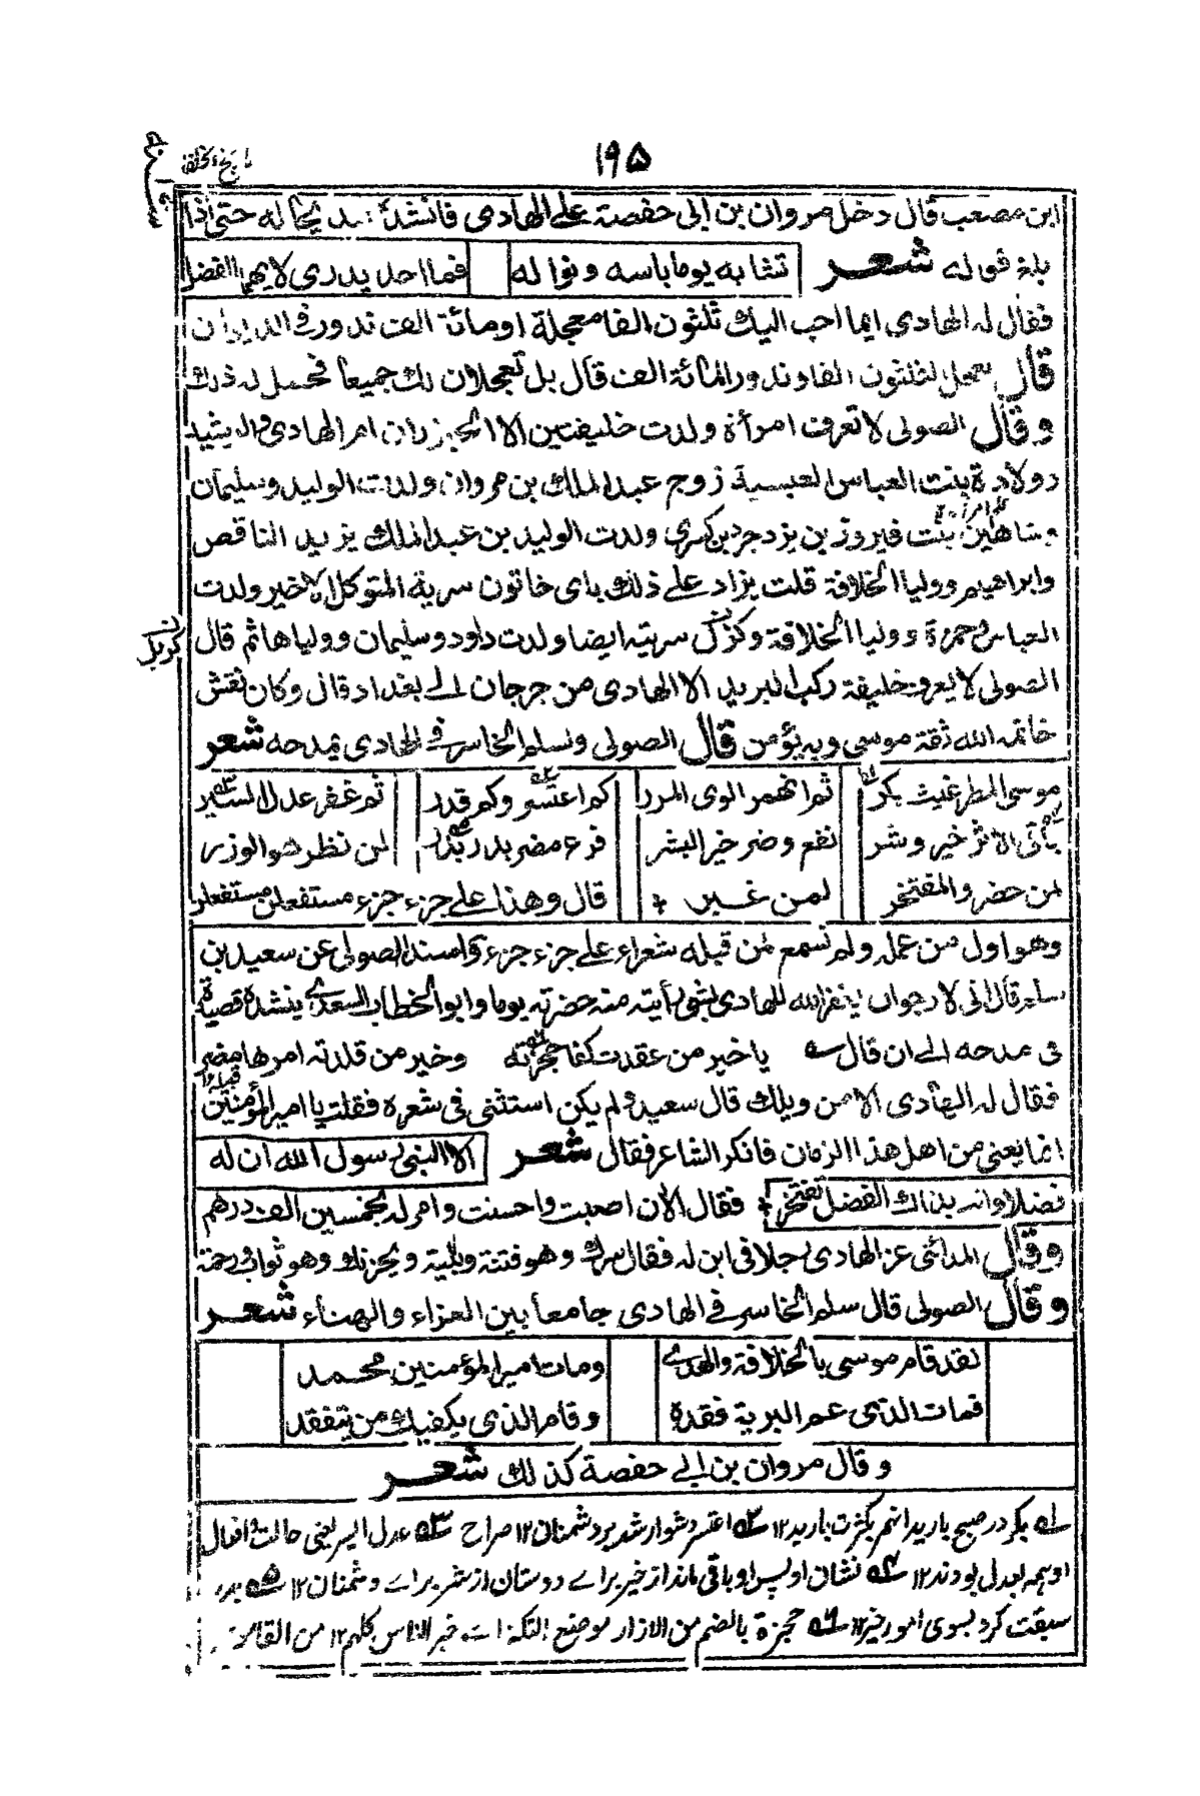 ۱۹۵
ابن مصعب قال دخل مروان بن ابی حفصة علے الهادی فانشده مدیحا له حتی اذا
بلغ قوله شعر تشابه یوما باسه ونواله فما احد یدری لایهما الفضل
فقال له الهادی ایما احب الیك ثلثون الفا معجلة او مائة الف تدور فی الدیوان
قال تعجل الثلثون الفا وتدور المائة الف قال بل تعجلان لك جمیعا فحمل له ذلك
وقال الصولی لا تعرف امرأة ولدت خلیفتین الا الخیزران ام الهادی والرشید
وولادة بنت العباس العبسیة زوج عبد الملك بن مروان ولدت الولید وسلیمان
وشاهین بنت فیروز بن یزدجرد بن کسری ولدت الولید بن عبد الملك یزید الناقص
وابراهیم وولیا الخلافة قلت یزاد علے ذلك بای خاتون سریة المتوکل الاخیر ولدت
العباس وحمزة وولیا الخلافة وکزل سریته ایضا ولدت داود وسلیمان وولیاها ثم قال
الصولی لا یعرف خلیفة رکب البرید الا الهادی من جرجان الے بغداد قال وکان نقش
خاتمه الله ثقة موسی وبه یؤمن قال الصولی ولسلم الخاسر فی الهادی یمدحه شعر
موسی المطر غیث بکر ثم انهمر الوی المرر کم اعتسر وکم قدر ثم غفر عدل السیر
باقی الاثر خیر وشر نفع وضر خیر البشر فرع مضر بدر بدر لمن نظر هو الوزر
لمن حضر والمفتخر لمن غبر قال وهذا علے جزء جزء مستفعلن مستفعلن
وهو اول من عمله ولم نسمع لمن قبله شعراء علے جزء جزء واسند الصولی عن سعید بن
سلم قال انی لارجو ان یغفر الله للهادی بشئ رأیته منه حضرته یوما وابو الخطاب السعدے ینشده قصیدة
فی مدحه الے ان قال یا خیر من عقدت کفاه حجزته وخیر من قلدته امرها مضر
فقال له الهادی الا من ویلك قال سعید ولم یکن استثنی فی شعره فقلت یا امیر المؤمنین
انما یعنی من اهل هذا الزمان فانکر الشاعر فقال شعر الا النبی رسول الله ان له
فضلا وانت بذاك الفضل تفتخر فقال الان اصبت واحسنت وامر له بخمسین الف درهم
وقال المدائنی عز الهادی رجلا فی ابن له فقال سرك وهو فتنة وبلیة ویحزنك وهو ثواب ورحمة
وقال الصولی قال سلم الخاسر فی الهادی جامعا بین العزاء والهناء شعر
لقد قام موسی بالخلافة والهدے ومات امیر المؤمنین محمد
فمات الذی عم البریة فقده وقام الذی یکفیك من یتفقد
وقال مروان بن ابی حفصة کذلك شعر
بکر در صبح بارید انهمر بکثرت بارید ۱۲ اعتسر دشوار شد بر دشمنان ۱۲ صراح عدل السیر یعنی حالت وافعال
او همه بعدل بودند ۱۲ نشان او پس او باقی ماند از خیر برائے دوستان از شر برائے دشمنان ۱۲ بدر
سبقت کرد بسوی امور خیر ۱۲ حجزة بالضم من الازار موضع التکة خیر الناس کلهم ۱۲ من